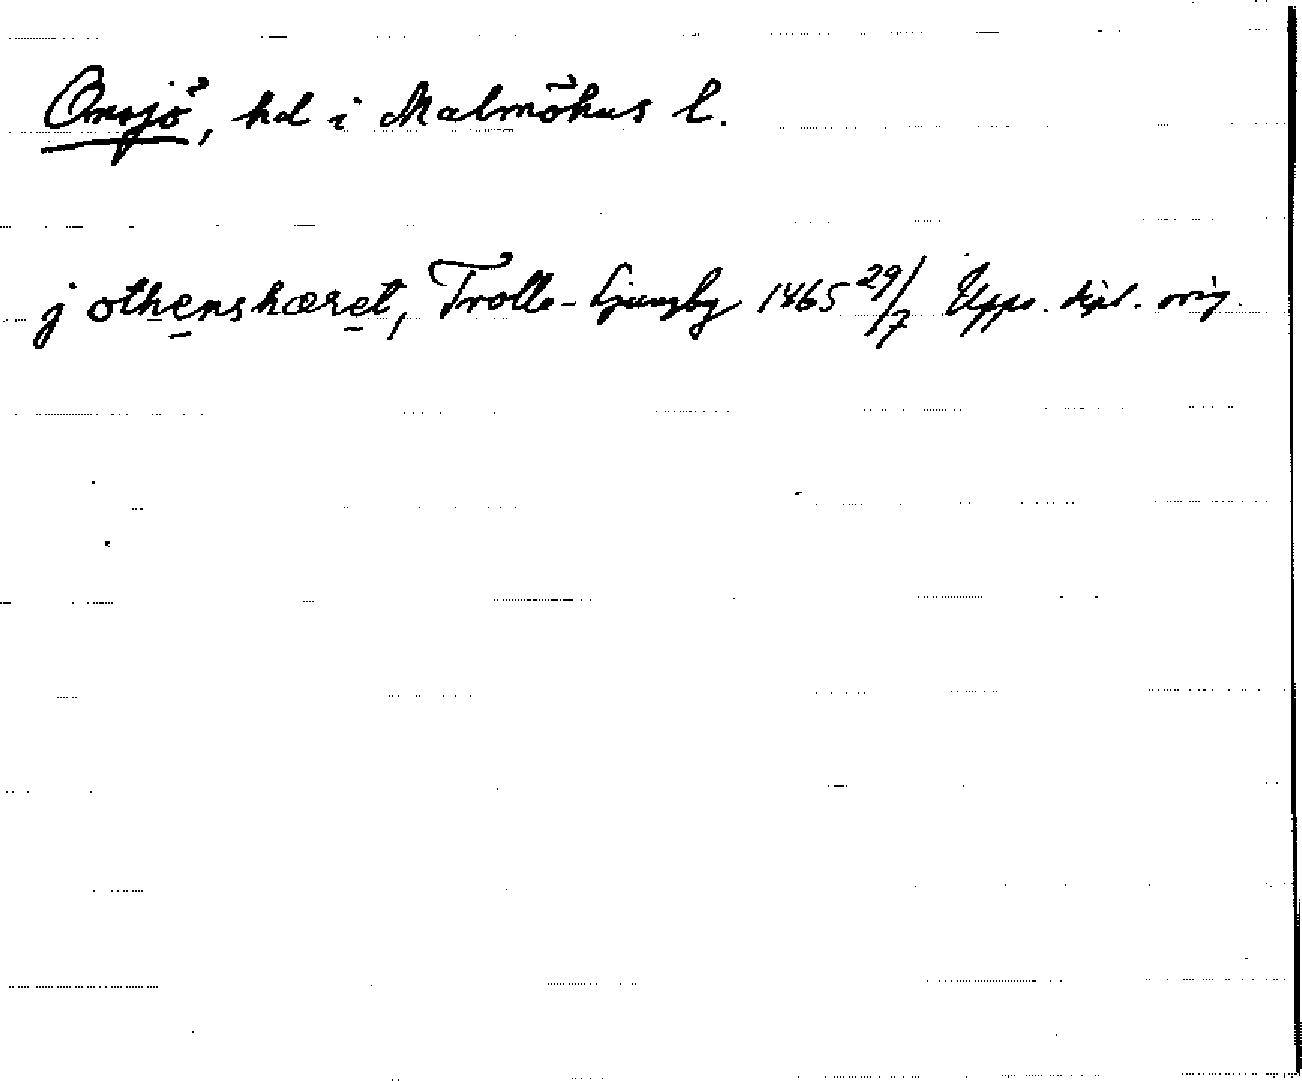 Onsjö, hd i Malmöhus l.
j othenshæret, Trolle-Ljungby 1465 29/7 Upps. dipl. orig.